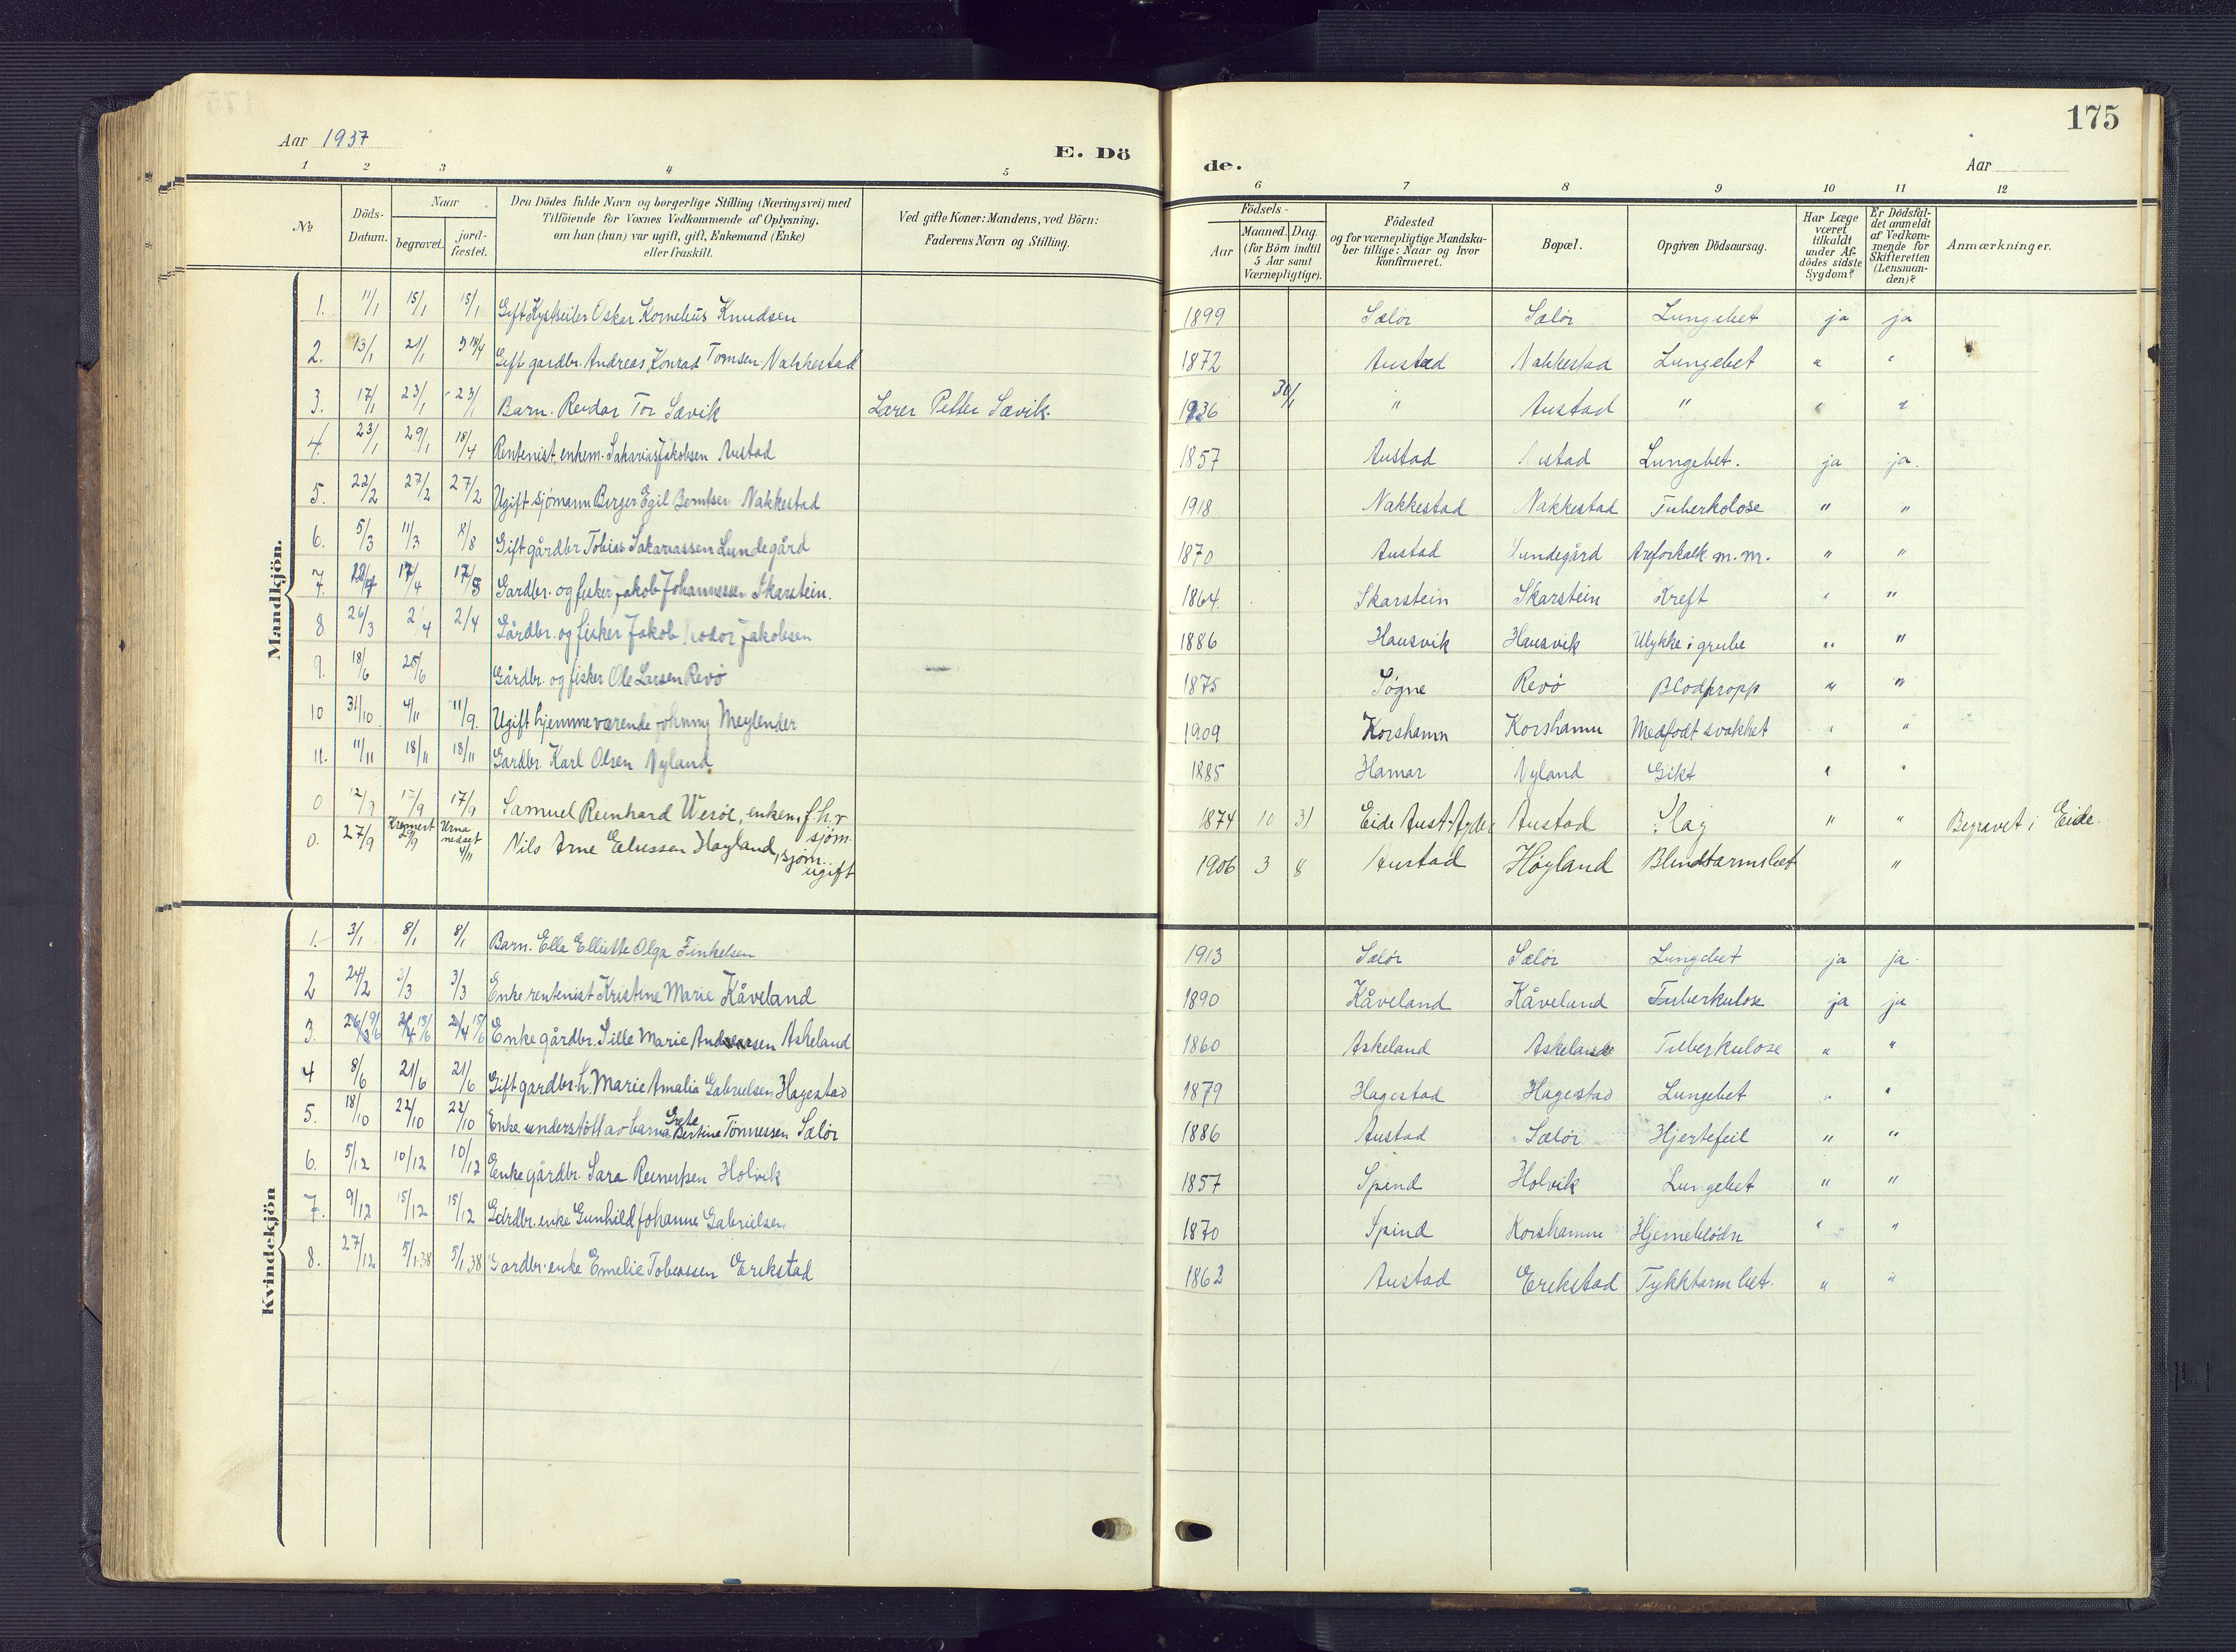 175
Aar 1937
E. Dö
de.
Aar
1 2 3 4 5
6 7 8 9 10 11 12
No
Döds-Datum.
Naar
begravet.
jord-fæstet.
Den Dödes fulde Navn og borgerlige Stilling (Næringsvei) med
Tilföiende for Voxnes Vedkommende af Oplysning.
om han (hun) var ugift, gift, Enkemand (Enke)
eller fraskilt.
Ved gifte Koner: Mandens, ved Börn:
Faderens Navn og Stilling.
Födsels-
Aar
Maaned. Dag.
(for Börn indtil
5 Aar samt
Værnepligtige).
Födested
og for værnepligtige Mandska-
ber tillige: Naar og hvor
konfirmeret.
Bopæl.
Opgiven Dödsaarsag.
Har Læge
været
tilkaldt
under Af-
dödes sidste
Sygdom?
Er Dödsfal-
det anmeldt
af Vedkom-
mende for
Skifteretten
(Lensman-
den)?
Anmærkninger.
Mandkjön.
1. 11/1 15/1 15/1 Gift Kystseiler Oskar Kornelius Knudsen 1899 Sælör Sælör Lungebet ja ja
2. 13/1 21/1 18/4 Gift gardbr. Andreas Konrad Tomsen Nakkestad 1872 Austad Nakkestad Lungebet " "
3. 17/1 23/1 23/1 Barn. Reidar Tor Sævik Lærer Petter Sævik. 1936 30/1 " Austad " " "
4. 23/1 29/1 18/4 Rentenist, enkem. Sakarias Jakobsen Austad 1857 Austad Austad Lungebet. ja ja.
5. 22/2 27/2 27/2 Ugift sjömann Berger Egil Berntsen Nakkestad 1918 Nakkestad Nakkestad Tuberkolose " "
6. 5/3 11/3 2/8 Gift gårdbr Tobias Sakariassen Lundegård 1870 Austad Lundegård Areforkalk m.m. " "
7. 17/4 Gardbr. og fisker Jakob Johannessen Skarstein. 1864. Skarstein Skarstein Kreft " "
8 26/3 2/4 2/4 Gårdbr. og fisker Jakob Teodor Jakobsen 1886 Hausvik Hausvik Ulykke i grube " "
9. 18/6 25/6 Gårdbr. og fisker Ole Larsen Revö 1875 Sögne Revö Blodpropp " "
10 31/10 4/11 11/9. Ugift hjemmeværende Johnny Meylender 1909 Korshamn Korshamn Medfödt svakhet " "
11. 11/11 18/11 18/11 Gardbr. Karl Olsen Nyland 1885 Hamar Nyland Gikt " "
0 12/9 17/9 17/9 Samuel Reinhard Wesöe, enkem, f.h.v sjöm. 1874 10 31 Eide Aust-Agder Austad Slag " " Begravet i Eide.
0. 27/9 Kremert 29/9 Urna nedsat 4/11 Nils Arne Eliessen Høyland, sjöm. ugift 1906 3 8 Austad Höyland Blindtarmsbet "
Kvindekjön
1. 3/1 8/1 8/1 Barn. Ella Elliette Olga Finkelsen 1913 Sælör Sælör Lungebet ja ja
2 24/2 3/3 3/3 Enke rentenist Kristine Marie Kåveland 1890 Kåveland Kåveland Tuberkulose ja ja
3. 9/6 15/6 15/6 Enke gårdbr. Sille Marie Andreassen Askeland 1860 Askeland Askeland Tuberkulose " "
4 8/6 21/6 21/6 Gift gardbr. h. Marie Amalia Gabrielsen Hagestad 1879 Hagestad Hagestad Lungebet " "
5. 18/10 22/10 22/10 Enke understött av barna Grete Bertine Tönnessen Sælör 1886 Austad Sælör Hjertefeil " "
6. 5/12 10/12 10/12 Enke gårdbr. Sara Reinertsen Holvik 1857 Spind Holvik Lungebet " "
7. 9/12 15/12 15/12 Gårdbr. enke Gunhild Johanne Gabrielsen 1870 Spind Korshamn Hjerneblödn " "
8. 27/12 5/1.38 5/1.38 Gardbr. enke Emelie Tobiassen Erikstad 1862 Austad Erikstad Tykktarmbet. " "